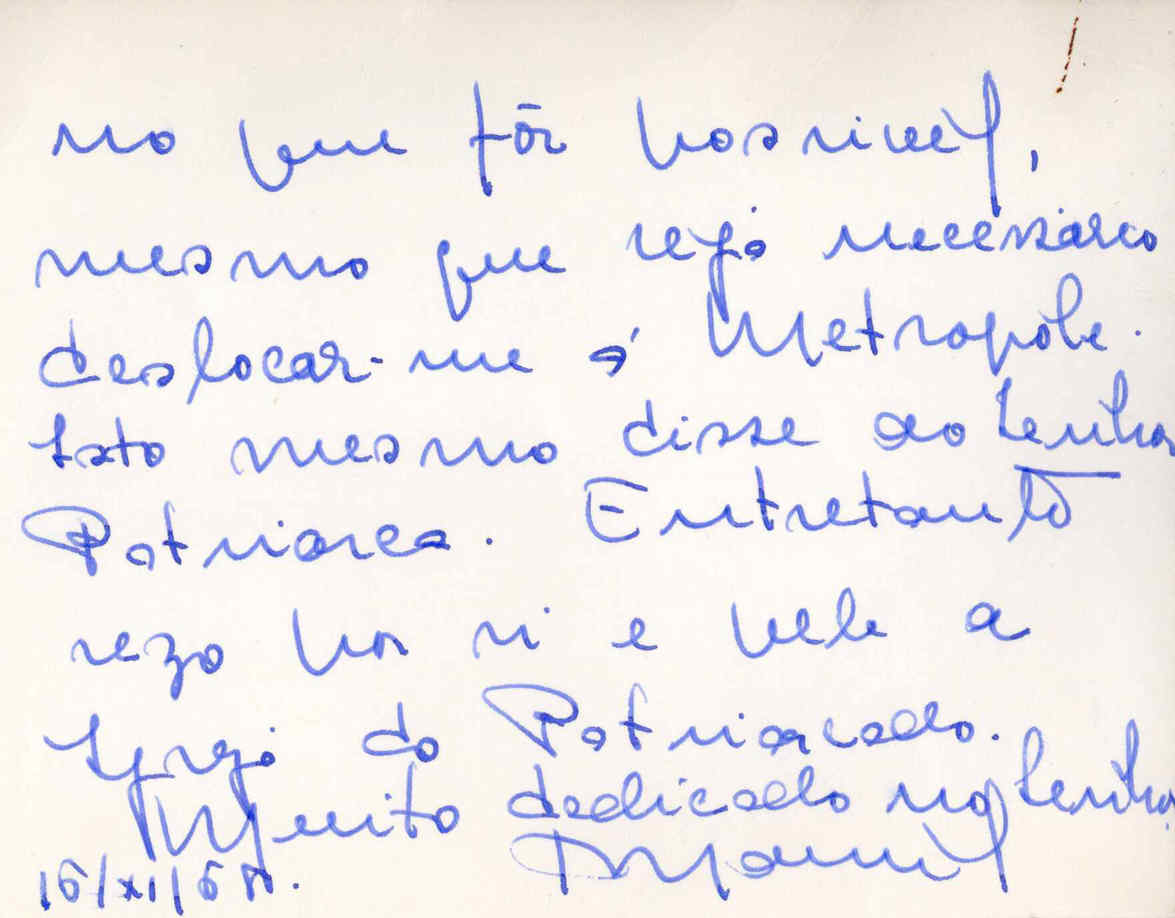 no que fôr possivel,
mesmo que seja necessário
deslocar-me à Metropole.
Isto mesmo disse ao Senhor
Patriarca. Entretanto
rezo por si e pela
Igreja do Patriarcado.
Muito dedicado no Senhor
Manuel
16/XI/6